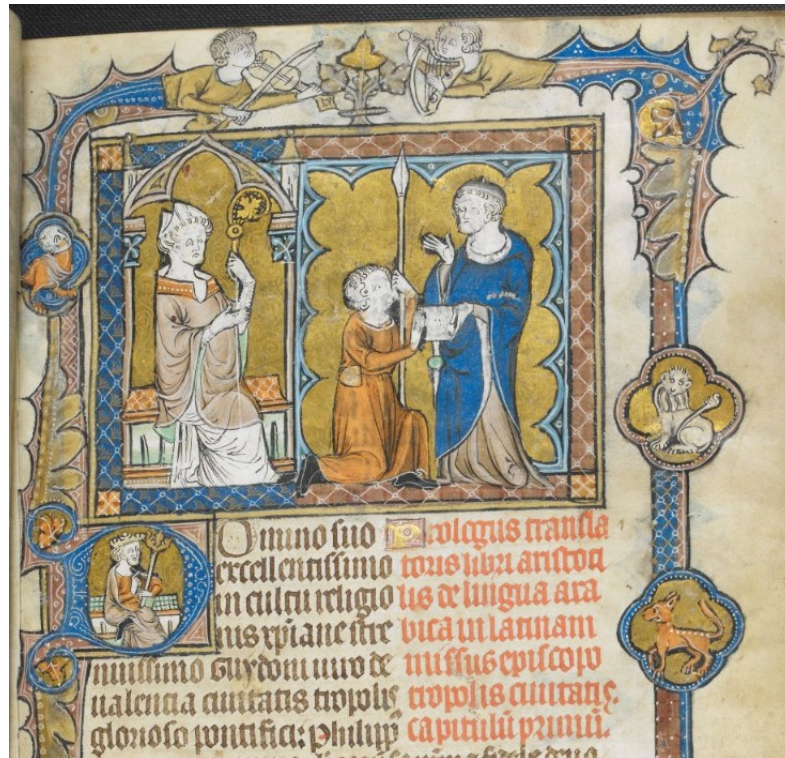 DOmino suo
excellentissimo
in cultu religio
nis xp̄iane stre
nuissimo Guydoni uiro de
ualencia ciuitatis tropolis
glorioso pontifici: Philipp⁹
Prologus transla
toris libri aristoti
lis de lingua ara
bica in latinam
missus episcopo
tropolis ciuitatis.
capitulū primū.